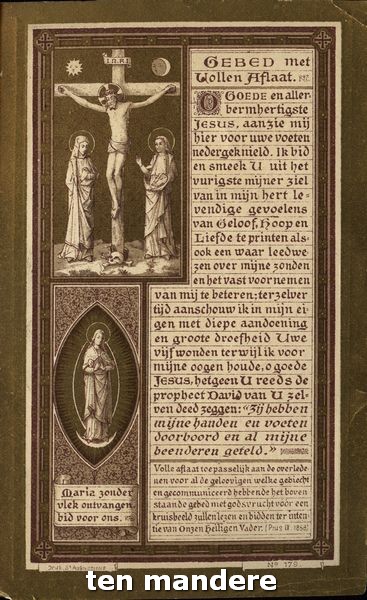 I.N.R.I.
GEBED met
Vollen Aflaat.
O GOEDE en aller-
bermhertigste
JESUS, aanzie mij
hier voor uwe voeten
nedergeknield. Ik bid
en smeek U uit het
vurigste mijner ziel
van in mijn hert le-
vendige gevoelens
van Geloof, Hoop en
Liefde te printen als-
ook een waar leedwe-
zen over mijne zonden
en het vast voornemen
van mij te beteren; terzelver
tijd aanschouw ik in mijn ei-
gen met diepe aandoening
en groote droefheid Uwe
vijf wonden terwijl ik voor
mijne oogen houde, o goede
JESUS, hetgeen U reeds de
propheet David van U zel-
ven deed zeggen: "Zij hebben
mijne handen en voeten
doorboord en al mijne
beenderen geteld."
Volle aflaat toepasselijk aan de overlede-
nen voor al de geloovigen welke gebiecht
en gecommuniceerd hebbende het boven
staande gebed met godsvrucht voor een
kruisbeeld zullen lezen en bidden ter inten-
tie van Onzen Heiligen Vader. (Pius IX. 1858)
Maria zonder
vlek ontvangen,
bid voor ons.
Druk. St Augustinus
No 179.
ten mandere